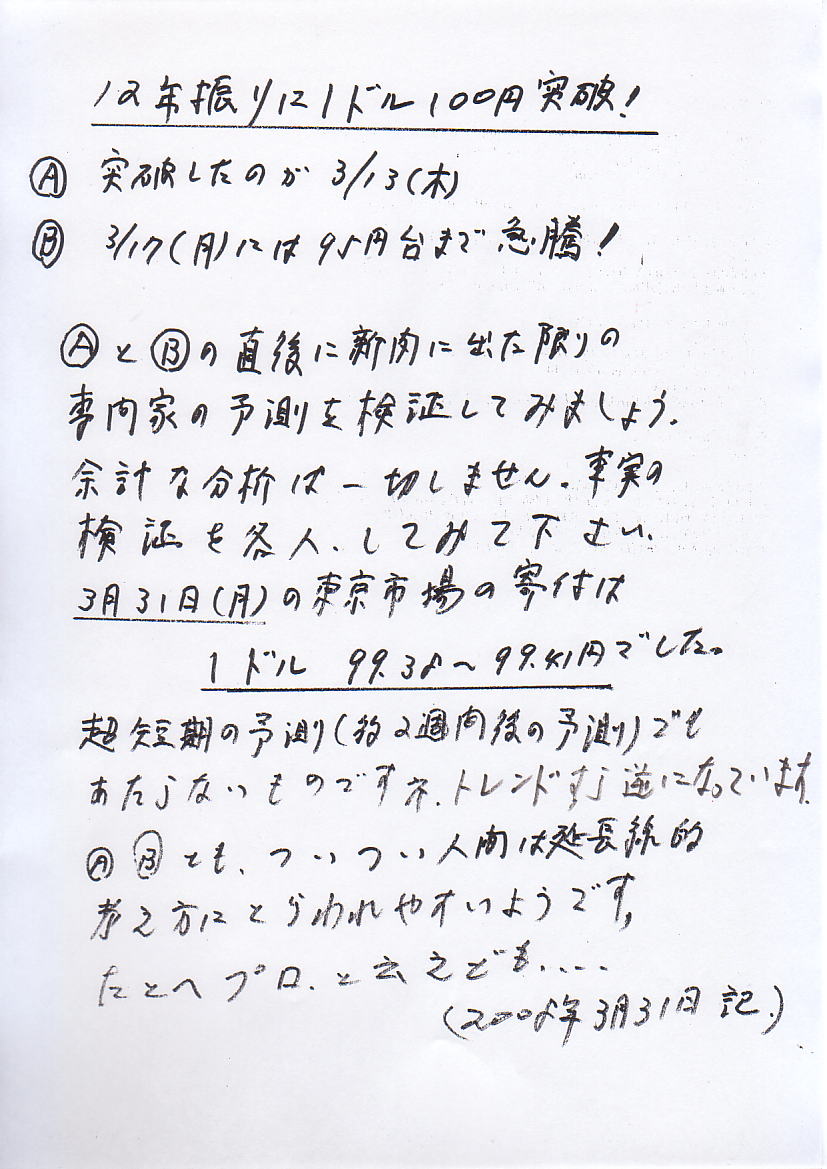 12年振りに1ドル100円突破!
Ⓐ 突破したのが 3/13(木)
Ⓑ 3/17(月)には95円台まで急騰!
ⒶとⒷの直後に新聞に出た限りの
専門家の予測を検証してみましょう.
余計な分析は一切しません.事実の
検証を各人.してみて下さい.
3月31日(月)の東京市場の寄付は
1ドル 99.38~99.41円でした。
超短期の予測(約2週間後の予測)でも
あたらないものですネ.トレンドすら逆になっています.
ⒶⒷとも、ついつい人間は延長線的
考え方にとらわれやすいようです,
たとへプロ.と云えども....
(2008年3月31日記.)